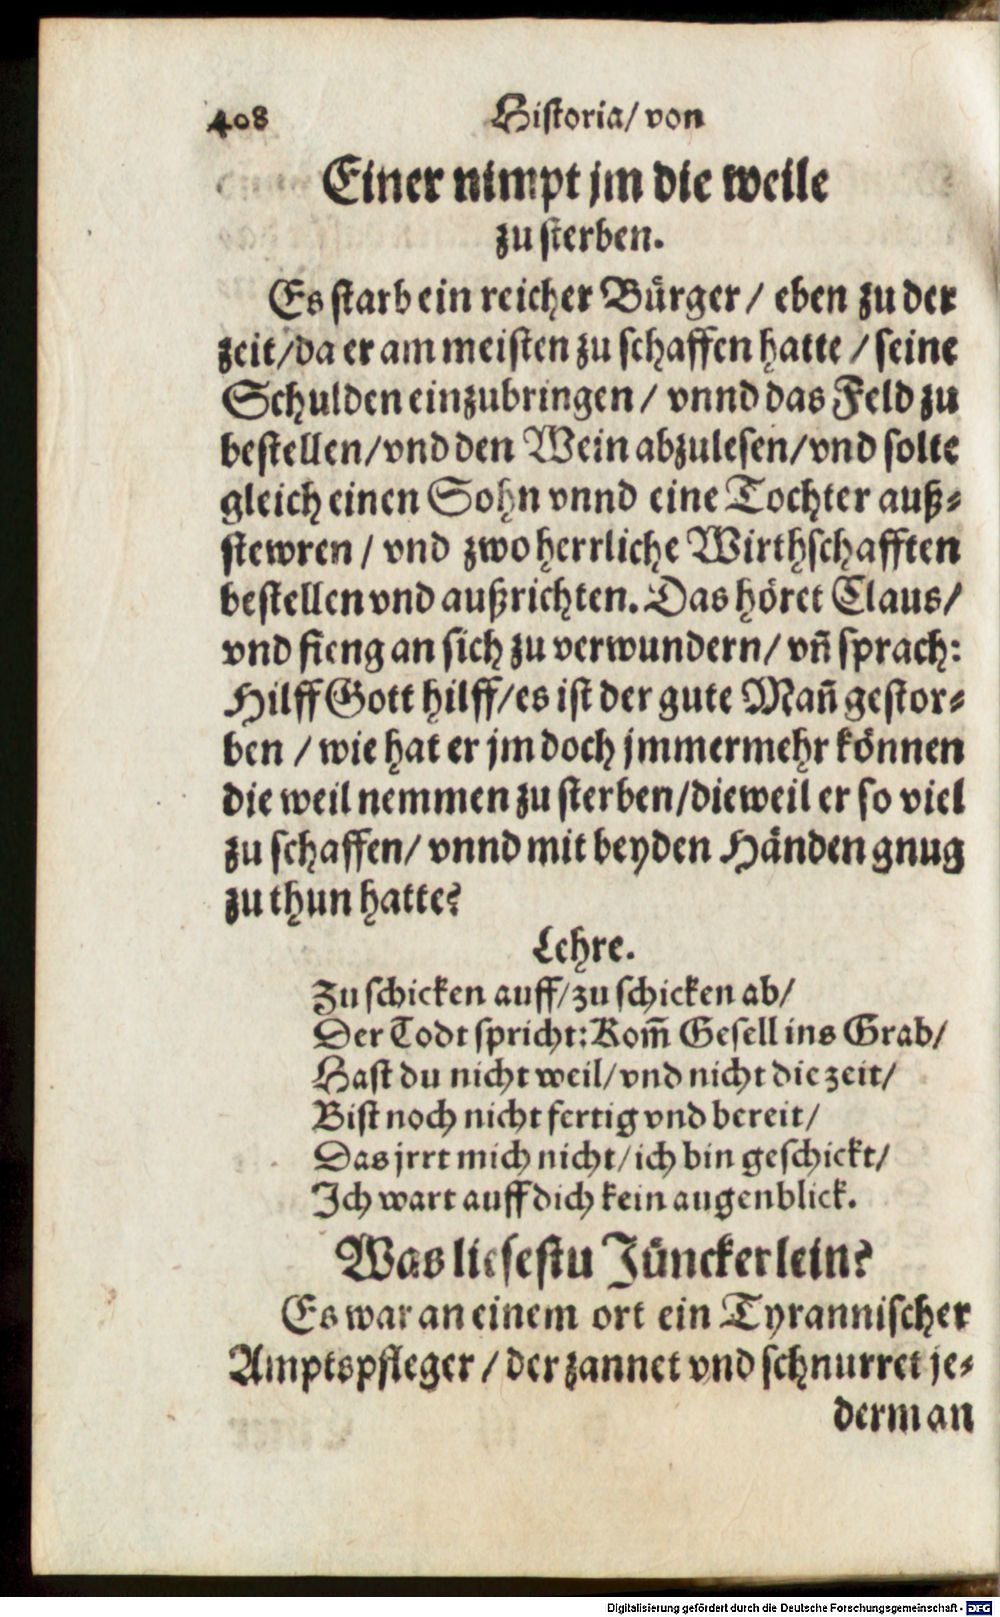 408 Historia/ von
Einer nimpt jm die weile
zu sterben.
Es starb ein reicher Bürger / eben zu der
zeit/da er am meisten zu schaffen hatte / seine
Schulden einzubringen / vnnd das Feld zu
bestellen/vnd den Wein abzulesen/vnd solte
gleich einen Sohn vnnd eine Tochter auß⸗
stewren / vnd zwo herrliche Wirthschafften
bestellen vnd außrichten. Das höret Claus/
vnd fieng an sich zu verwundern/ vñ sprach:
Hilff Gott hilff/es ist der gute Mañ gestor⸗
ben / wie hat er jm doch jmmermehr können
die weil nemmen zu sterben/dieweil er so viel
zu schaffen/ vnnd mit beyden Händen gnug
zu thun hatte?
Lehre.
Zu schicken auff/zu schicken ab/
Der Todt spricht: Kom̃ Gesell ins Grab/
Hast du nicht weil/vnd nicht die zeit/
Bist noch nicht fertig vnd bereit/
Das jrrt mich nicht/ich bin geschickt/
Ich wart auff dich kein augenblick.
Was liesestu Jünckerlein?
Es war an einem ort ein Tyrannischer
Amptspfleger / der zannet vnd schnurret je⸗
derman
Digitalisierung gefördert durch die Deutsche Forschungsgemeinschaft - DFG